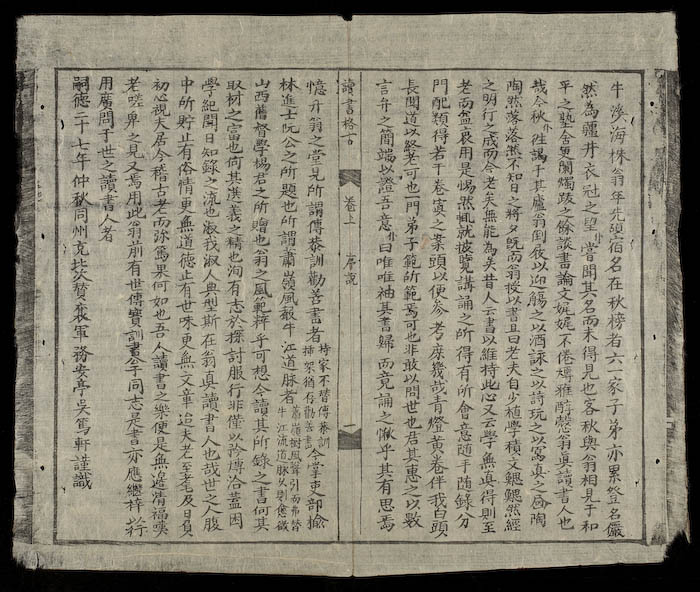 牛溪海株翁年先碩宿名在秋榜者六一家子弟亦累登名儼
然為疆井衣冠之望嘗聞其名而未得見也客秋與翁相見于和
平之塾舍更闌燭跋之餘談書論文娓娓不倦博雅醇慤翁真讀書人也
哉今秋往謁于其廬翁倒屐以迎觴之以酒詠之以詩玩之以寫真之啚陶
陶然落落然不知日之將夕既而翁授以書且曰老夫自少植學積文鰓鰓然經
之明行之成而今老矣無能為矣昔人云書以維持此心又云學無真得則至
老而益衰用是惕然輒就披覽講誦之所得有所會意隨手隨錄分
門配類得若干卷寘之案頭以便參考庶幾哉青燈黃卷伴我白頭
長聞道以終老可也一門弟子範所範焉可也非敢以問世也君其惠之以數
言弁之簡端以證吾意曰唯唯袖其書歸而竟誦之懺乎其有思焉
讀書格言 卷上 序說 一
憶升翁之堂見所謂傳恭訓勸善書者持家不替傳恭訓插架猶存勸善書今掌吏部掄
林進士阮公之所題也所謂肅嶺風聲牛江道脉者肅嶺樹風聲引而弗替牛江流道脉久則愈徵
山西舊督學楊君之所贈也翁之風範粹乎可想今讀其所錄之書何其
取材之富也何其選義之精也洵有志於探討服行非僅以矜博洽蓋困
學紀聞日知錄之流也淑我淑人典型斯在翁真讀書人也哉世之人腹
中所貯止有俗情更無道德止有世味更無文章迨夫老至耄及日負
初心視夫居今稽古老而篤焉果何如也吾人讀書之樂便是無邊清福奠
老陸鼻之見又焉用此翁前有世傳寶訓畫公子同志是書亦應繼梓以行
用廣問于世之讀書人者
嗣德二十七年仲秋同州充北次贊襄軍務安亭吳篤軒謹識